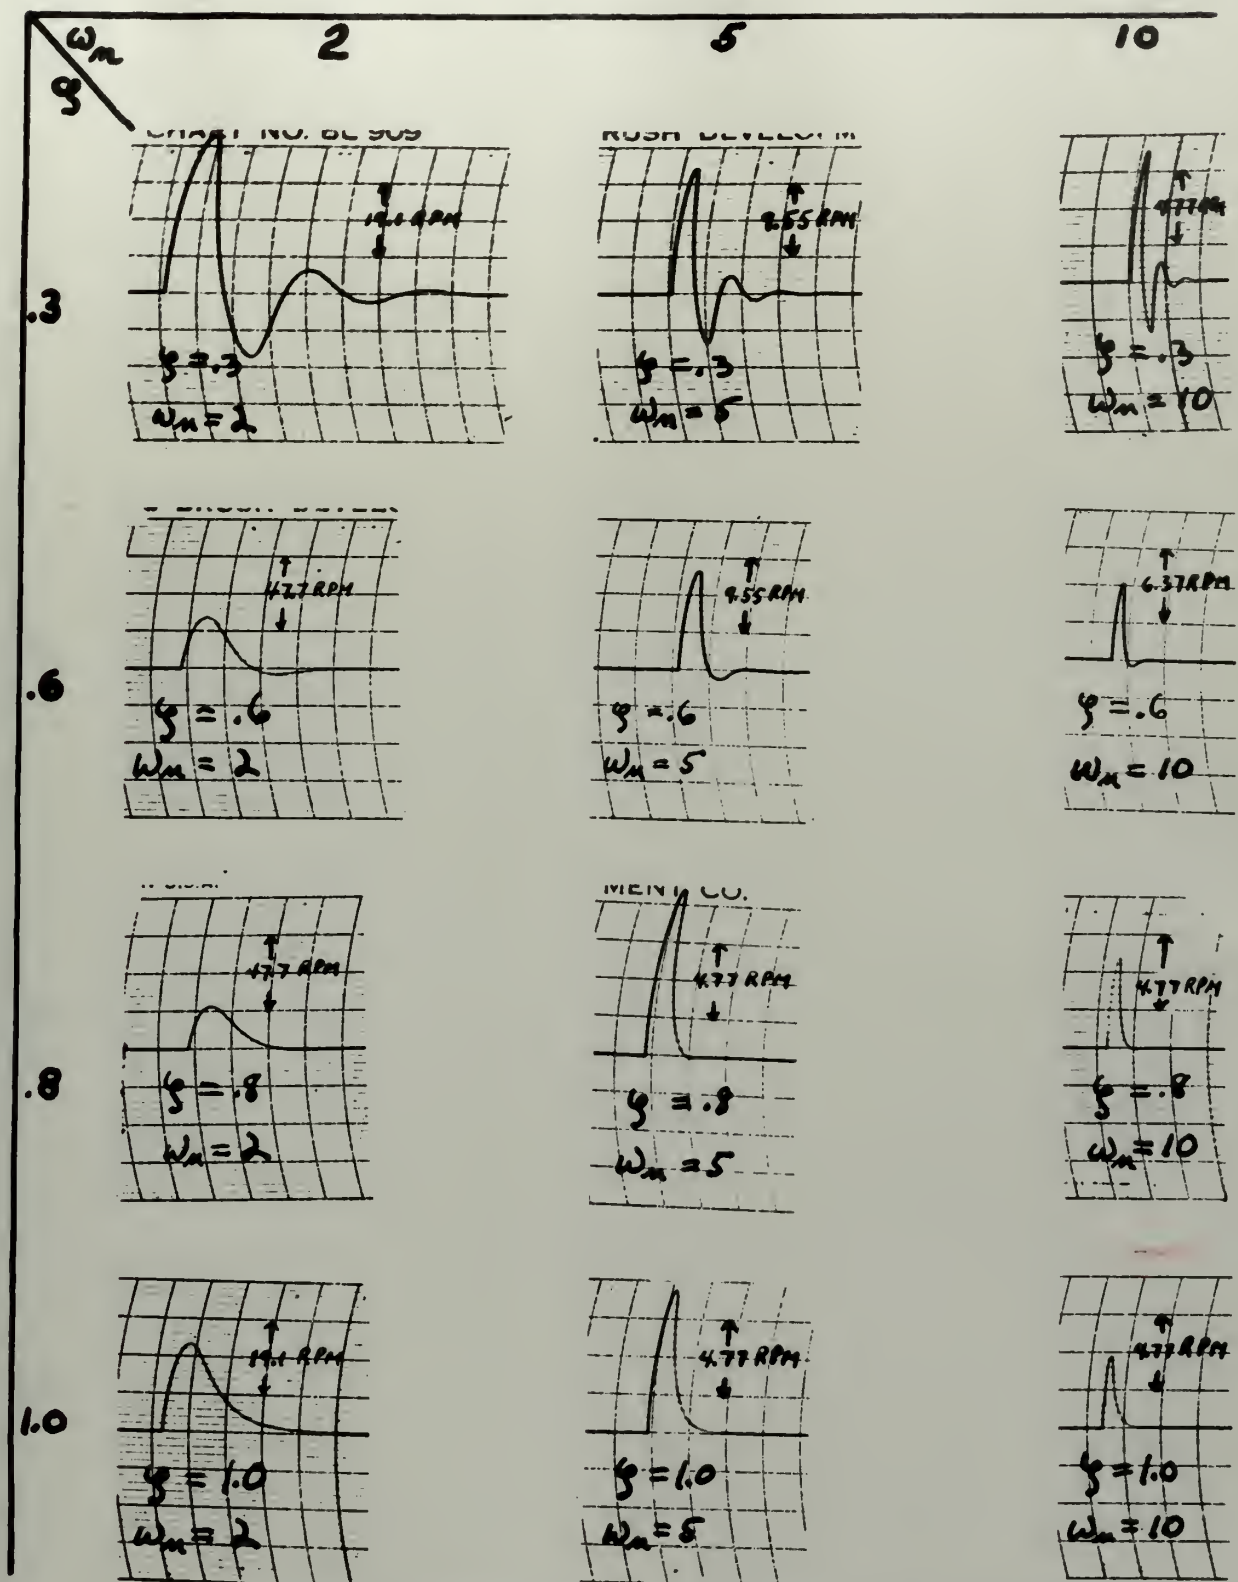 ωn 2 5 10
ζ
CHART NO. BL 909
RUSH DEVELOPM
.3
19.1 RPM
ζ = .3
ωn = 2
9.55 RPM
ζ = .3
ωn = 5
4.77 RPM
ζ = .3
ωn = 10
.6
47.7 RPM
ζ = .6
ωn = 2
9.55 RPM
ζ = .6
ωn = 5
6.37 RPM
ζ = .6
ωn = 10
.8
U.S.A.
47.7 RPM
ζ = .8
ωn = 2
MENT CO.
4.77 RPM
ζ = .8
ωn = 5
4.77 RPM
ζ = .8
ωn = 10
1.0
19.1 RPM
ζ = 1.0
ωn = 2
4.77 RPM
ζ = 1.0
ωn = 5
4.77 RPM
ζ = 1.0
ωn = 10